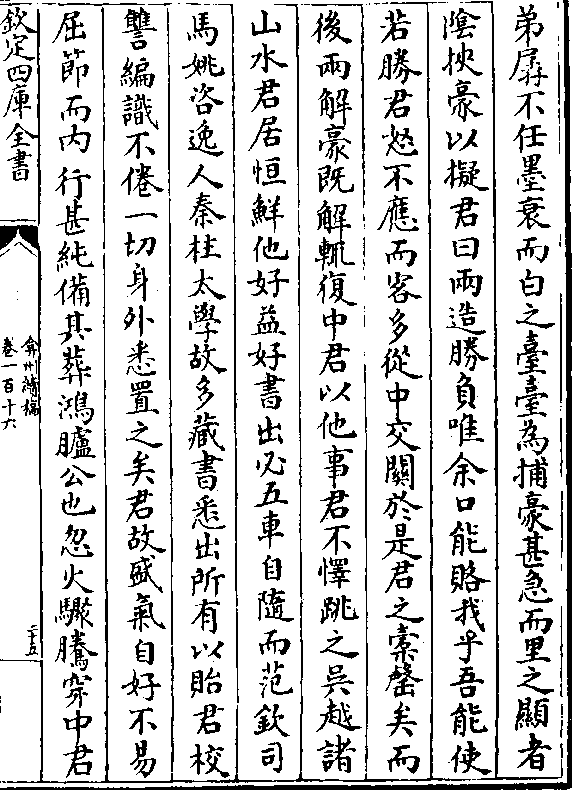 弟孱不任墨衰而白之臺臺為捕豪甚急而里之顯者
陰挾豪以擬君曰兩造勝負唯余口能賂我乎吾能使
若勝君怒不應而客多從中交關於是君之橐罄矣而
後兩解豪既解輒復中君以他事君不懌跳之吳越諸
山水君居恒鮮他好益好書出必五車自隨而范欽司
馬姚咨逸人秦柱太學故多藏書悉出所有以貽君校
讐編識不倦一切身外悉置之矣君故盛氣自好不易
屈節而內行甚純備其葬鴻臚公也忽火驟騰穿中君
欽定四庫全書
弇州續稿
卷一百十六
二十五